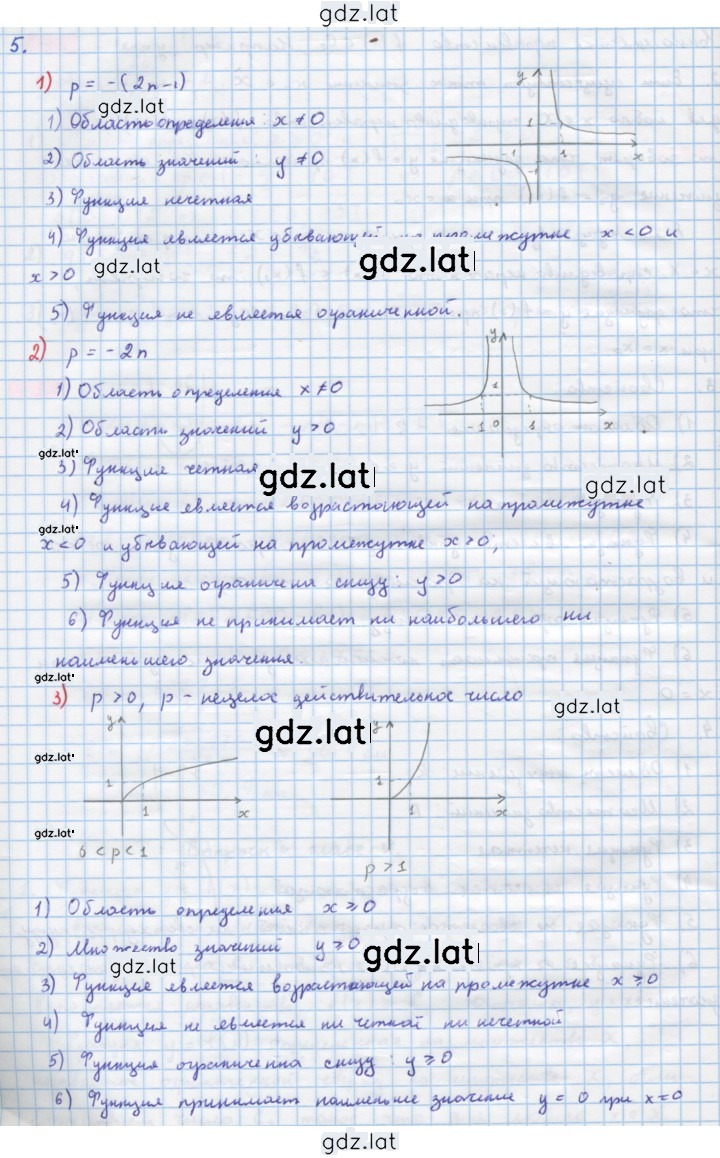 gdz.lat
5.
1) p = -(2n-1)
gdz.lat
1) Область определения: x ≠ 0
2) Область значений: y ≠ 0
3) Функция нечетная
4) Функция является убывающей на промежутке x < 0 и
x > 0
gdz.lat
gdz.lat
5) Функция не является ограниченной.
y
1
-1
1
-1
x
2) p = -2n
1) Область определения x ≠ 0
2) Область значений y > 0
gdz.lat
3) Функция четная
gdz.lat
gdz.lat
y
1
-1 0 1 x
4) Функция является возрастающей на промежутке
gdz.lat
x < 0 и убывающей на промежутке x > 0;
5) Функция ограничена снизу: y > 0
6) Функция не принимает ни наибольшего ни
наименьшего значения.
gdz.lat
3) p > 0, p - нецелое действительное число
gdz.lat
gdz.lat
gdz.lat
y
1
1
x
gdz.lat
0 < p < 1
y
1
1
x
p > 1
1) Область определения x ⩾ 0
2) Множество значений y ⩾ 0
gdz.lat
gdz.lat
3) Функция является возрастающей на промежутке x ⩾ 0
4) Функция не является ни четной ни нечетной
5) Функция ограниченна снизу: y ⩾ 0
6) Функция принимает наименьшее значение y = 0 при x = 0
gdz.lat